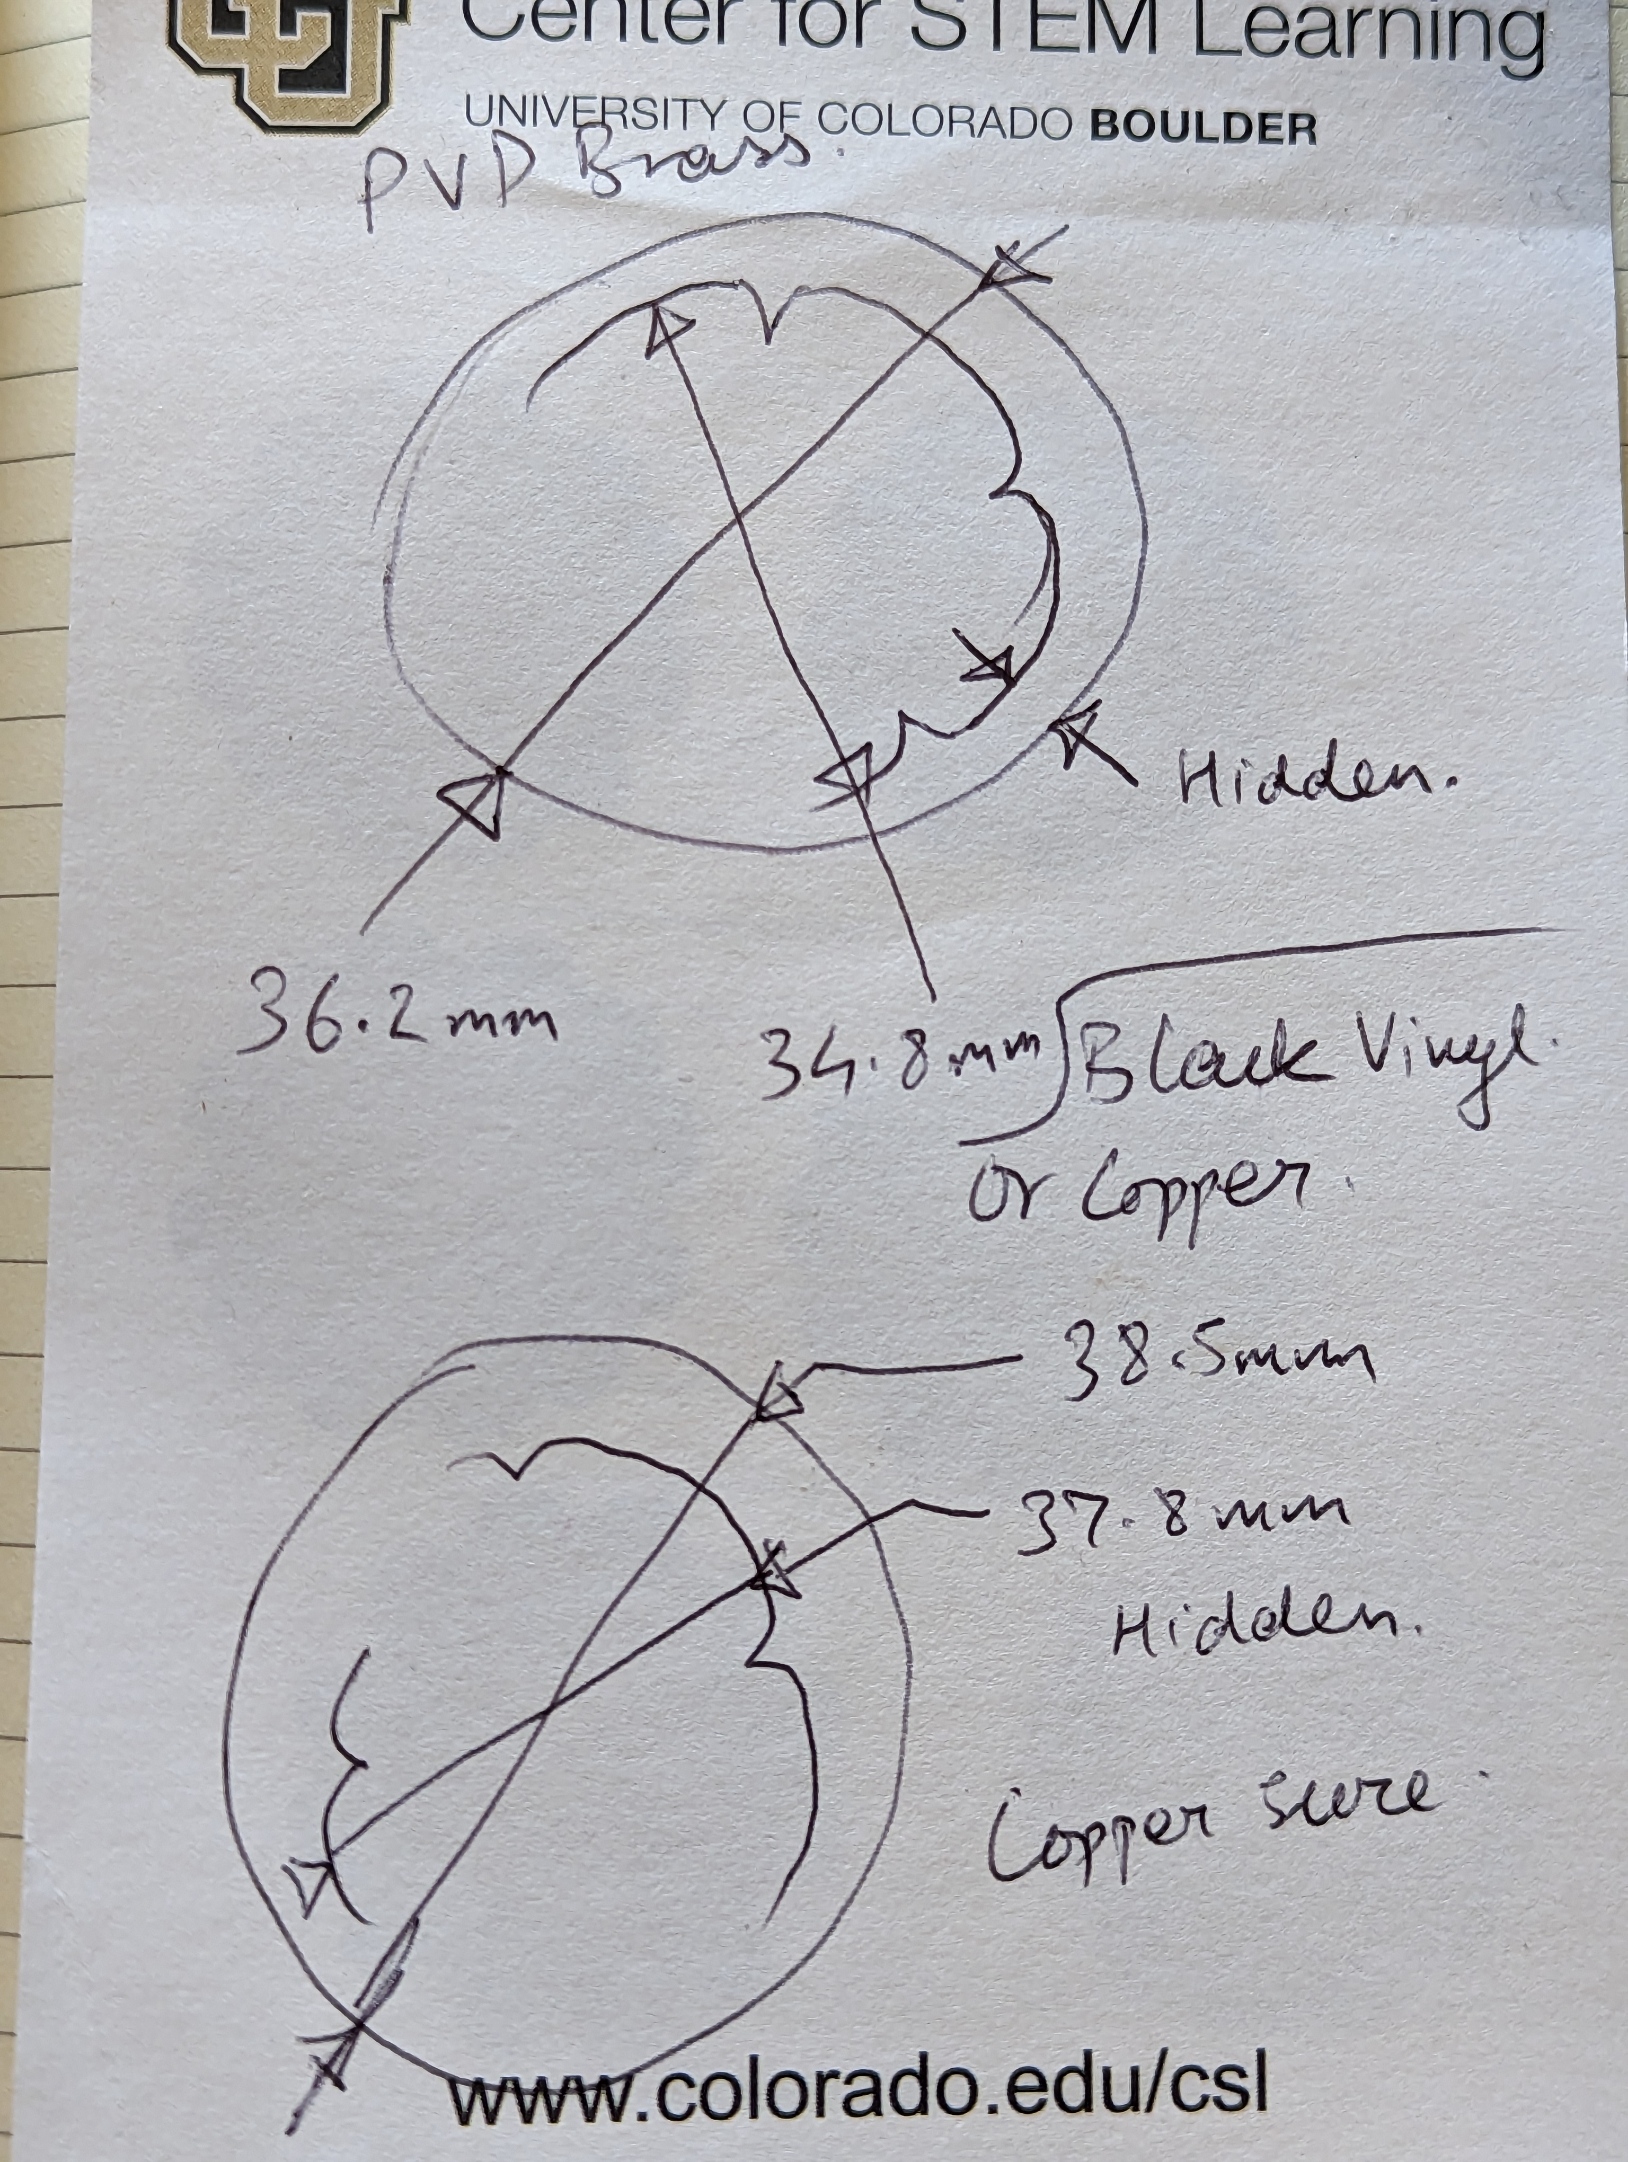 Center for STEM Learning
UNIVERSITY OF COLORADO BOULDER
PVD Brass.
Hidden.
36.2mm
34.8mm
Black Vinyl.
Or Copper.
38.5mm
37.8mm
Hidden.
Copper sure.
www.colorado.edu/csl